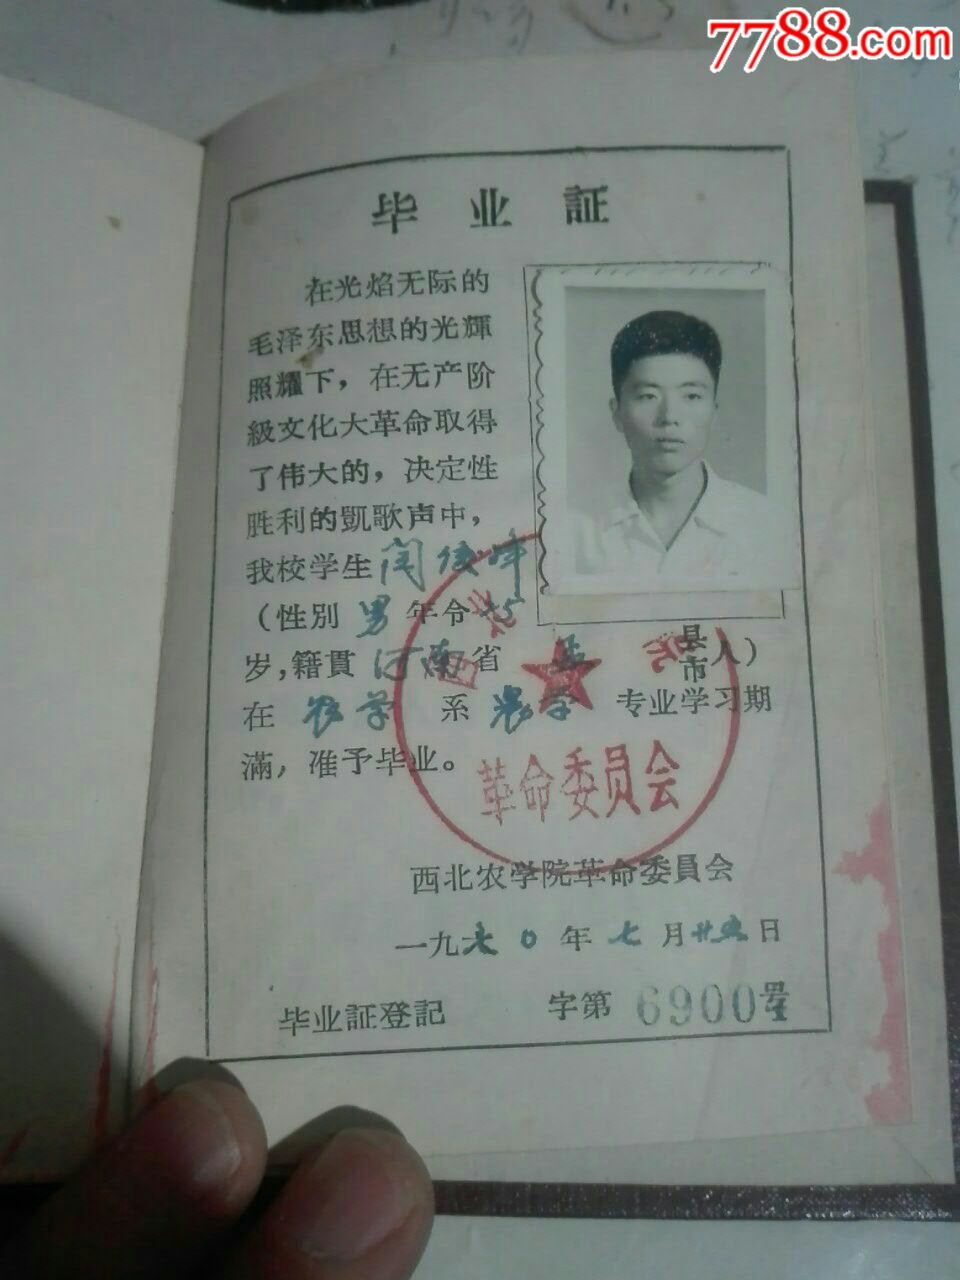 7788.com
毕业証
在光焰无际的
毛泽东思想的光輝
照耀下，在无产阶
級文化大革命取得
了伟大的，决定性
胜利的凱歌声中，
我校学生闫俊峰
（性别 男 年令 25
岁，籍貫 河南省 孟 县市人）
在 农学 系 农学 专业学习期
滿，准予毕业。
革命委员会
西北农学院革命委員会
一九七〇年七月廿五日
毕业証登記 字第 6900 号